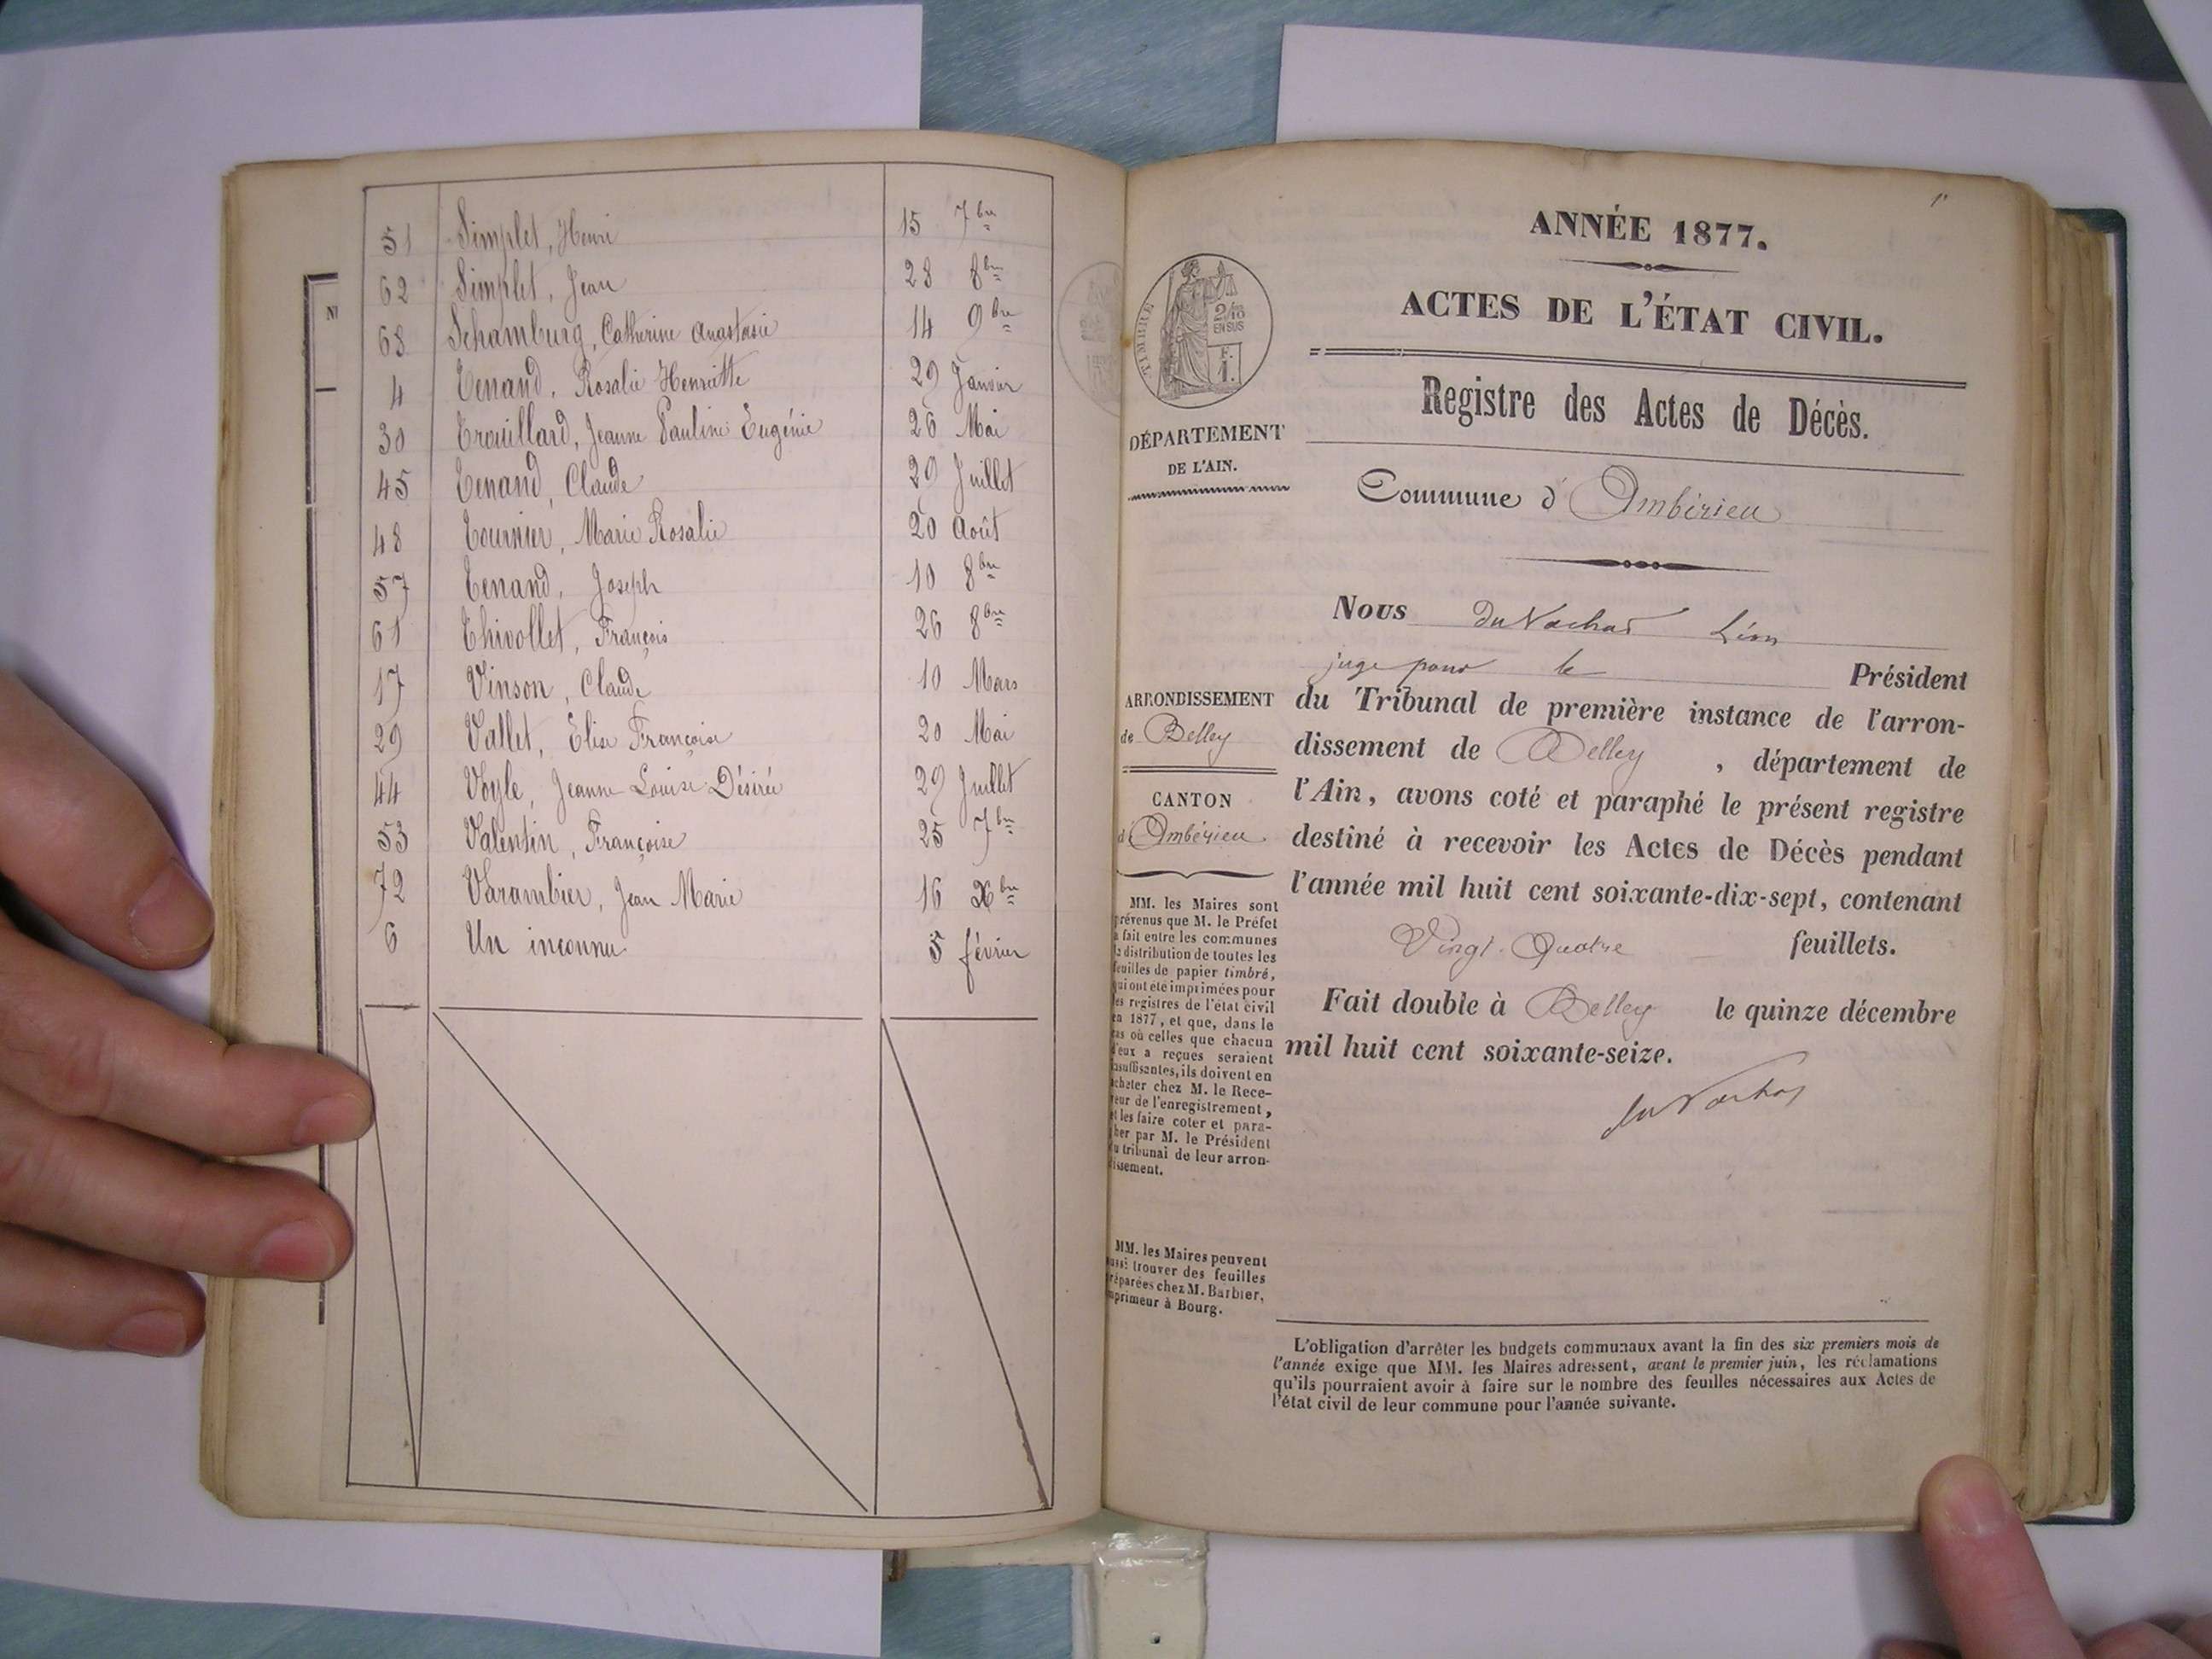 51 Simplet, Henri 15 7bre
62 Simplet, Jean 28 8bre
68 Schamburg, Catherine Anastasie 14 9bre
4 Tenand, Rosalie Henriette 29 Janvier
30 Trouillard, Jeanne Pauline Eugénie 26 Mai
45 Tenand, Claude 29 Juillet
48 Tournier, Marie Rosalie 20 Août
57 Tenand, Joseph 10 8bre
61 Thivollet, François 26 8bre
17 Vinson, Claude 10 Mars
29 Vallet, Elise Françoise 20 Mai
44 Voyle, Jeanne Louise Désirée 29 Juillet
53 Valentin, Françoise 25 7bre
72 Varambier, Jean Marie 16 Xbre
6 Un inconnu 5 février
ANNÉE 1877.
ACTES DE L'ÉTAT CIVIL.
TIMBRE
2/10
EN SUS
F.
1.
Registre des Actes de Décès.
DÉPARTEMENT
DE L'AIN.
Commune d'Ambérieu
Nous du Nachas Léon
juge pour le Président
du Tribunal de première instance de l'arron-
dissement de Belley, département de
l'Ain, avons coté et paraphé le présent registre
destiné à recevoir les Actes de Décès pendant
l'année mil huit cent soixante-dix-sept, contenant
Vingt-Quatre feuillets.
Fait double à Belley le quinze décembre
mil huit cent soixante-seize.
ARRONDISSEMENT
de Belley
CANTON
d'Ambérieu
MM. les Maires sont
prévenus que M. le Préfet
a fait entre les communes
la distribution de toutes les
feuilles de papier timbré,
qui ont été imprimées pour
les registres de l'état civil
en 1877, et que, dans le
cas où celles que chacun
d'eux a reçues seraient
insuffisantes, ils doivent en
acheter chez M. le Rece-
veur de l'enregistrement,
et les faire coter et para-
pher par M. le Président
du tribunal de leur arron-
dissement.
MM. les Maires peuvent
aussi trouver des feuilles
préparées chez M. Barbier,
imprimeur à Bourg.
L'obligation d'arrêter les budgets communaux avant la fin des six premiers mois de
l'année exige que MM. les Maires adressent, avant le premier juin, les réclamations
qu'ils pourraient avoir à faire sur le nombre des feuilles nécessaires aux Actes de
l'état civil de leur commune pour l'année suivante.